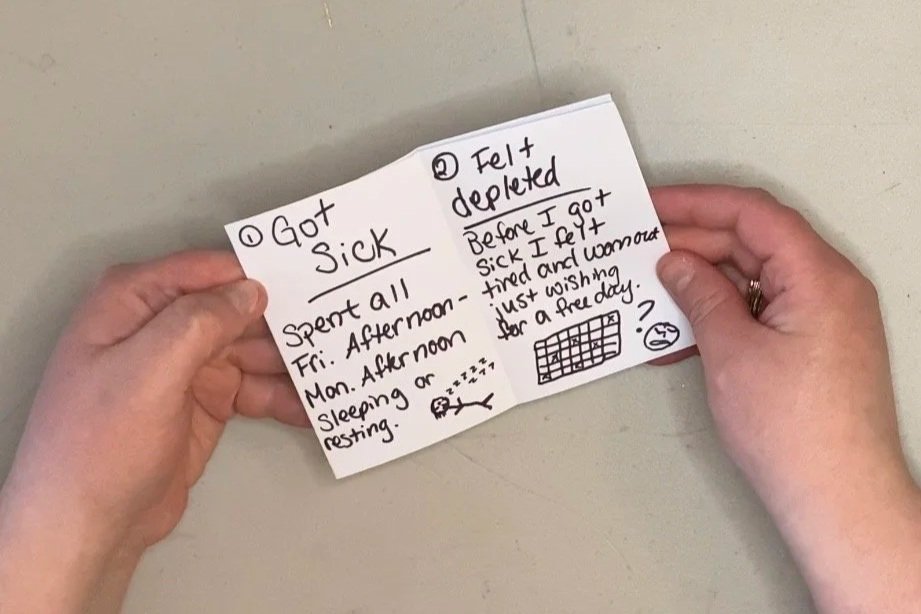 ① Got
Sick
Spent all
Fri. Afternoon-
Mon. Afternoon
Sleeping or
resting.
zzzzz
zzzz
② Felt
depleted
Before I got
sick I felt
tired and wornout
just wishing
for a free day.
?